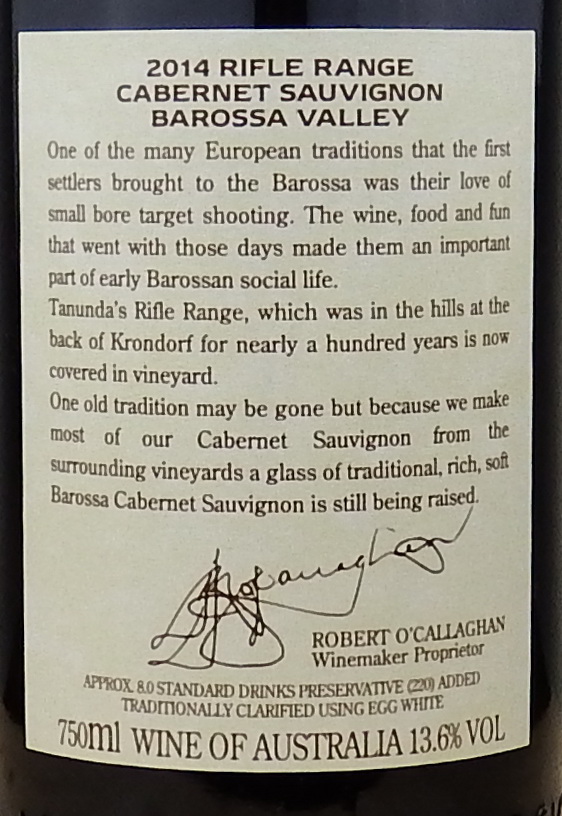 2014 RIFLE RANGE
CABERNET SAUVIGNON
BAROSSA VALLEY
One of the many European traditions that the first
settlers brought to the Barossa was their love of
small bore target shooting. The wine, food and fun
that went with those days made them an important
part of early Barossan social life.
Tanunda's Rifle Range, which was in the hills at the
back of Krondorf for nearly a hundred years is now
covered in vineyard.
One old tradition may be gone but because we make
most of our Cabernet Sauvignon from the
surrounding vineyards a glass of traditional, rich, soft
Barossa Cabernet Sauvignon is still being raised.
ROBERT O'CALLAGHAN
Winemaker Proprietor
APPROX. 8.0 STANDARD DRINKS PRESERVATIVE (220) ADDED
TRADITIONALLY CLARIFIED USING EGG WHITE
750ml WINE OF AUSTRALIA 13.6% VOL